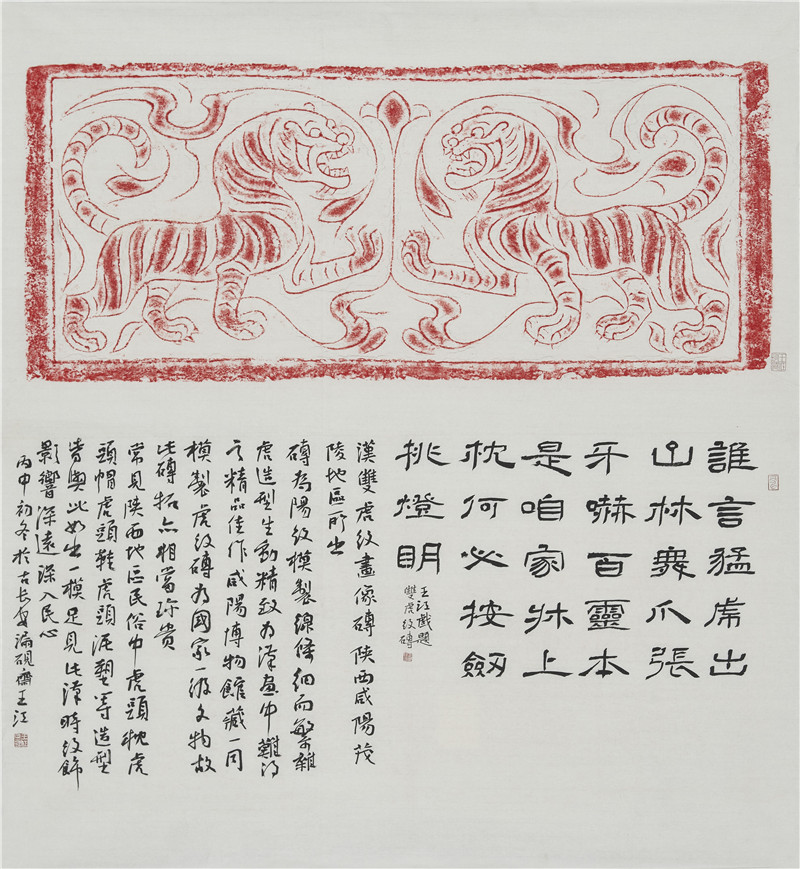 誰言猛虎出
山林舞爪張
牙嚇百靈本
是咱家牀上
枕何必按劔
挑燈明
王江戲題
雙虎紋磚
漢雙虎紋畫像磚陝西咸陽茂
陵地區所出
磚為陽紋模製線條細而繁雜
虎造型生動精致為漢畫中難得
之精品佳作咸陽博物館藏一同
模製虎紋磚為國家一级文物故
此磚拓亦相當珍貴
常見陝西地區民俗中虎頭枕虎
頭帽虎頭鞋虎頭泥塑等造型
皆與此如出一模足見此漢時紋飾
影響深遠深入民心
丙申初冬於古長安硯齋王江